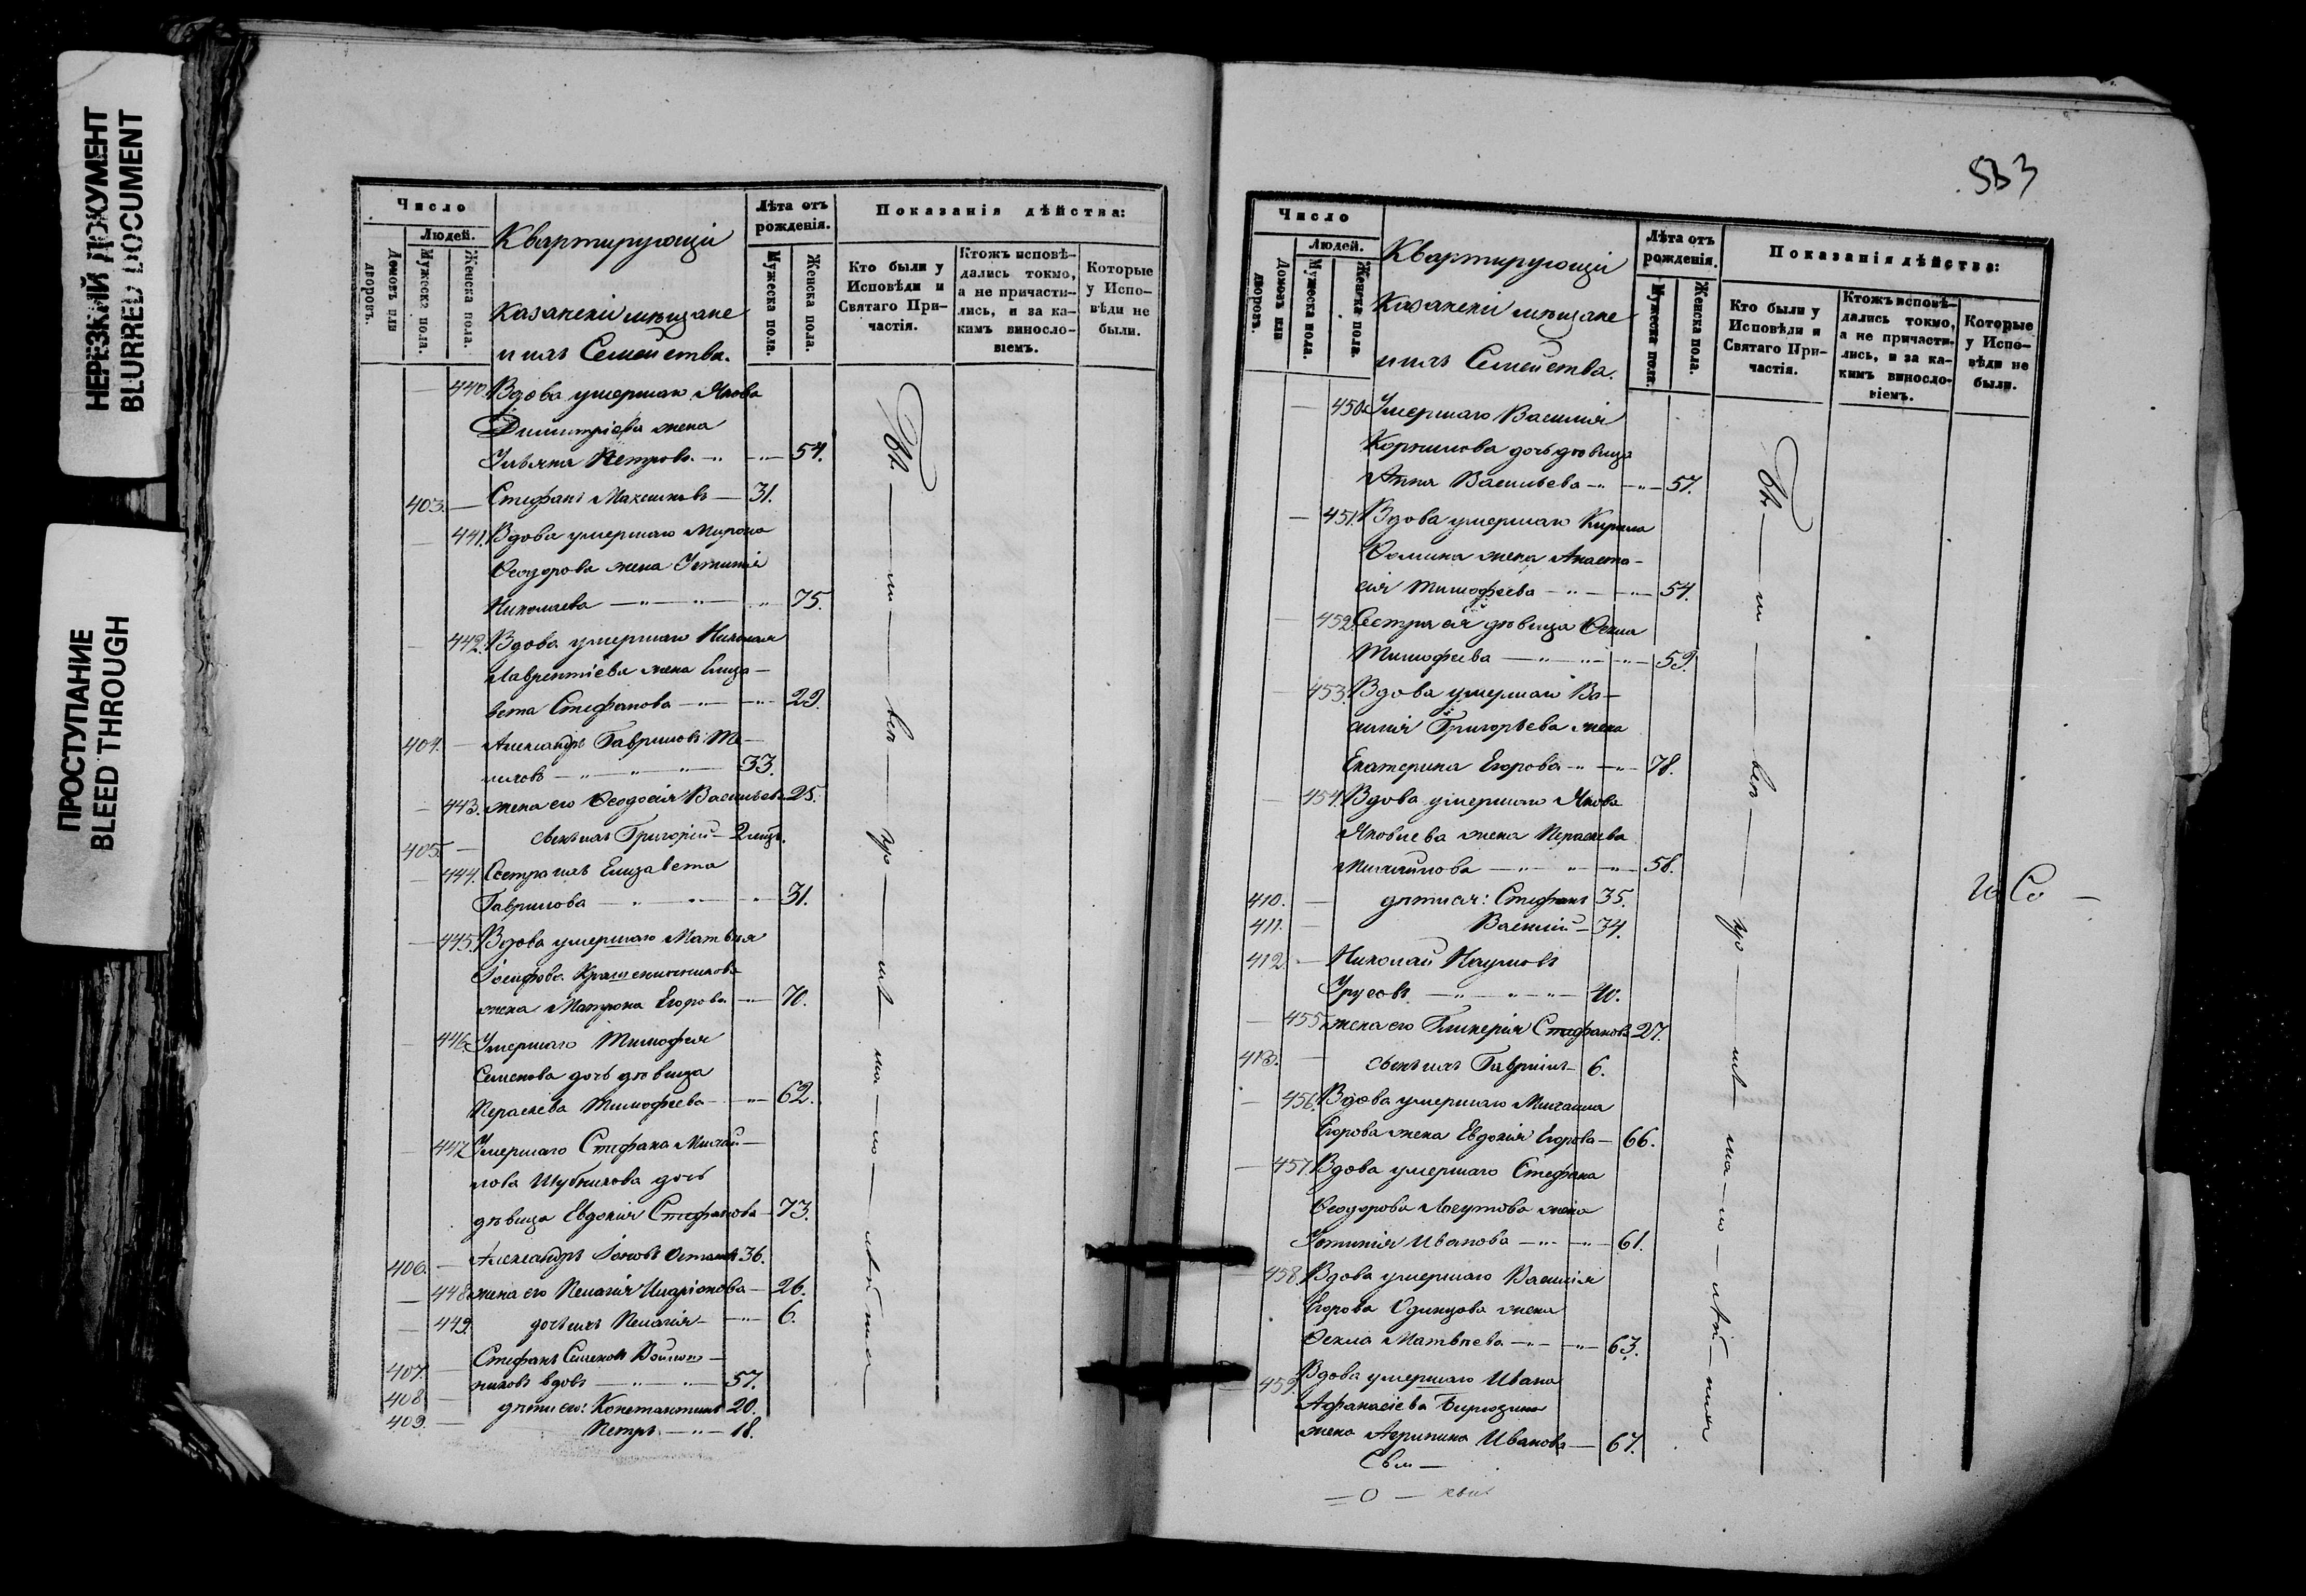 НЕРЕЗКИЙ ДОКУМЕНТ
BLURRED DOCUMENT
ПРОСТУПАНИЕ
BLEED THROUGH
Число
Людей.
Домовъ или дворовъ.
Мужеска пола.
Женска пола.
Квартирующіи
Казанскіи мѣщане
и ихъ Семейства.
Лѣта отъ рожденія.
Мужеска пола.
Женска пола.
Показанія дѣйства:
Кто были у Исповѣди и Святаго Причастія.
Ктожъ исповѣдались токмо, а не причастились, и за какимъ винословіемъ.
Которые у Исповѣди не были.
440. Вдова умершаго Якова
Димитріева жена
Ульяна Петрова 54.
403. Стефанъ Максимовъ 31.
441. Вдова умершаго Мирона
Ѳеодорова жена Устинія
Николаева 75.
442. Вдова умершаго Николая
Лаврентіева жена Елиза-
вета Стефанова 29.
404. Александръ Гавриловъ
33.
443. жена его Ѳеодосія Васильева 25.
405. сынъ ихъ Григорій 2 мѣц.
444. Сестра ихъ Елизавета
Гаврилова 31.
445. Вдова умершаго Матвѣя
Іосифова Крашенинникова
жена Матрона Егорова 70.
446. Умершаго Тимофея
Семенова дочь дѣвица
Параскева Тимофеева 62.
447. Умершаго Стефана Михай-
лова Шубникова дочь
дѣвица Евдокія Стефанова 73.
406. Александръ Іоновъ 36.
448. жена его Пелагія Иларіонова 26.
449. дочь ихъ Пелагія 6.
407. Стефанъ Семеновъ
вдовъ 57.
408. дѣти его: Константинъ 20.
409. Петръ 18.
553
Число
Людей.
Домовъ или дворовъ.
Мужеска пола.
Женска пола.
Квартирующіи
Казанскіи мѣщане
и ихъ Семейства.
Лѣта отъ рожденія.
Мужеска пола.
Женска пола.
Показанія дѣйства:
Кто были у Исповѣди и Святаго Причастія.
Ктожъ исповѣдались токмо, а не причастились, и за какимъ винословіемъ.
Которые у Исповѣди не были.
450. Умершаго Василія
Корнилова дочь дѣвица
Анна Васильева 57.
451. Вдова умершаго Кирила
Ѳомина жена Анаста-
сія Тимофеева 54.
452. Сестра ея дѣвица Ѳекла
Тимофеева 59.
453. Вдова умершаго Ва-
силія Григорьева жена
Екатерина Егорова 78.
454. Вдова умершаго Якова
Яковлева жена Параскева
Михайлова 58.
410. дѣти ея: Стефанъ 35.
411. Василій 34.
412. Николай Наумовъ
Урусовъ 40.
455. жена его Гликерія Стефанова 27.
413. сынъ ихъ Гавріилъ 6.
456. Вдова умершаго Михаила
Егорова жена Евдокія Егорова 66.
457. Вдова умершаго Стефана
Ѳеодорова жена
Устинія Иванова 61.
458. Вдова умершаго Василія
Егорова Одинцова жена
Ѳекла Матвѣева 63.
459. Вдова умершаго Ивана
Афанасіева
жена Агрипина Иванова 67.